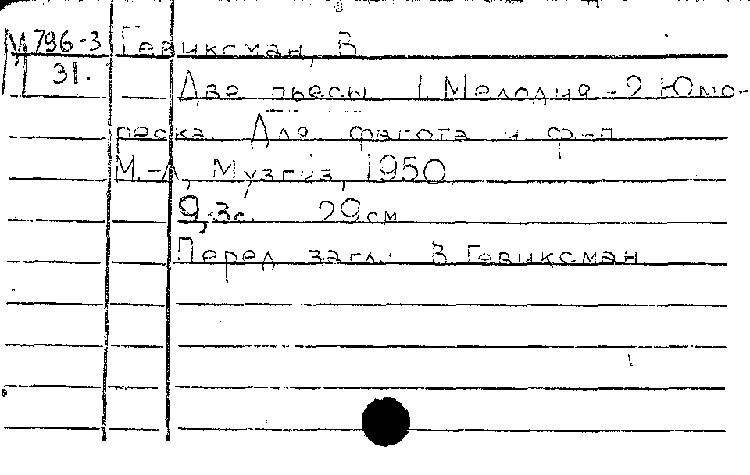 М 796-3 Гевиксман, В
31.
Две пьесы 1 Мелодия - 2 Юмо-
реска. Для фагота и ф-п
М.-Л, Музгиз, 1950
9, 3с. 29 см
Перед загл: В Гевиксман